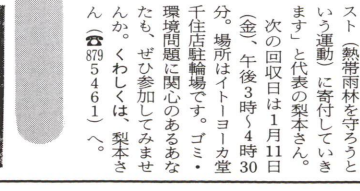 スト（熱帯雨林を守ろうと
いう運動）に寄付していき
ます」と代表の梨本さん。
次の回収日は１月11日
（金）、午後３時〜４時30
分。場所はイトーヨーカ堂
千住店駐輪場です。ゴミ・
環境問題に関心のあるあな
たも、ぜひ参加してみませ
んか。くわしくは、梨本さ
ん（☎879５４６１）へ。